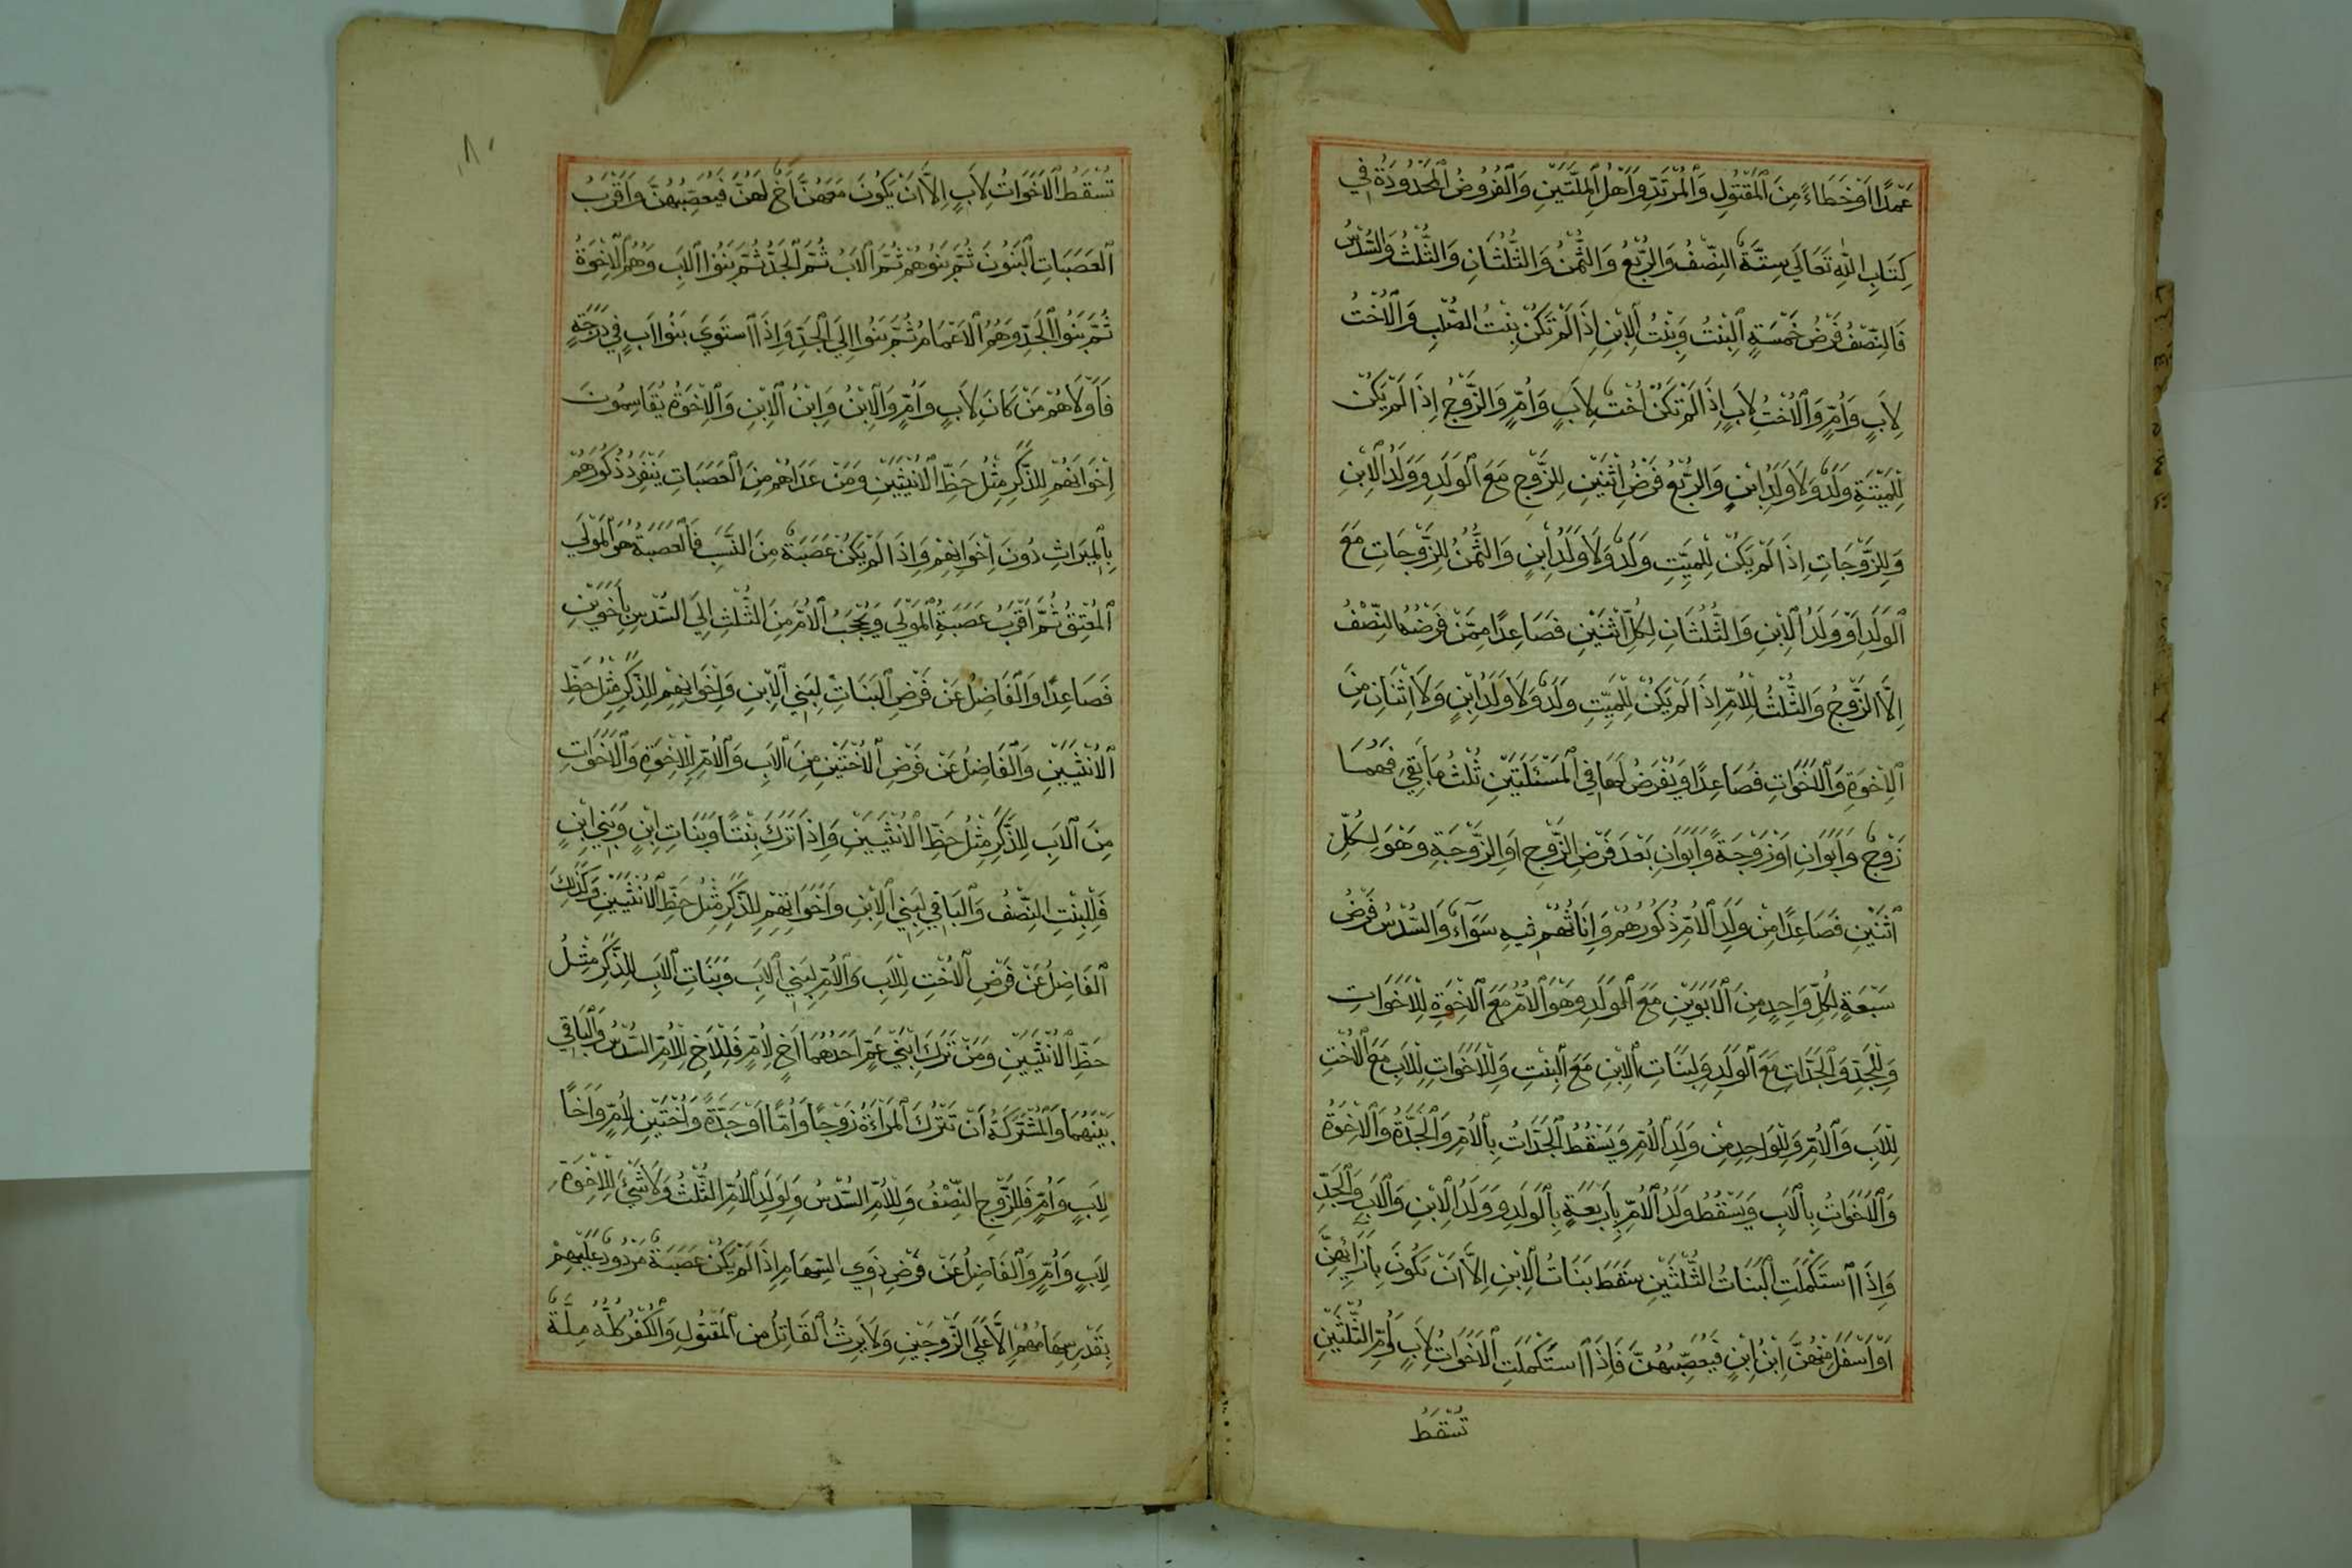 عَمْدًا اَوْ خَطَاءً مِنَ الْمَقْتُولِ وَالْمُرْتَدِّ وَاَهْلُ الْمِلَّتَيْنِ وَالْفُرُوضُ الْمَحْدُودَةُ فِي
كِتَابِ اللّٰهِ تَعَالَي سِتَّةٌ النِّصْفُ وَالرُّبْعُ وَالثُّمْنُ وَالثُّلْثَانِ وَالثُّلْثُ وَالسُّدْسُ
فَالنِّصْفُ فَرْضُ خَمْسَةٍ الْبِنْتُ وَبِنْتُ الْاِبْنِ اِذَا لَمْ تَكُنْ بِنْتُ الصُّلْبِ وَالْاُخْتُ
لِاَبٍ وَاُمٍّ وَالْاُخْتُ لِاَبٍ اِذَا لَمْ تَكُنْ اُخْتٌ لِاَبٍ وَاُمٍّ وَالزَّوْجُ اِذَا لَمْ يَكُنْ
لِلْمَيِّتَةِ وَلَدٌ وَلَا وَلَدُ ابْنٍ وَالرُّبْعُ فَرْضُ اثْنَيْنِ لِلزَّوْجِ مَعَ الْوَلَدِ وَوَلَدُ الْاِبْنِ
وَلِلزَّوْجَاتِ اِذَا لَمْ يَكُنْ لِلْمَيِّتِ وَلَدٌ وَلَا وَلَدُ ابْنٍ وَالثُّمْنُ لِلزَّوْجَاتِ مَعَ
الْوَلَدِ اَوْ وَلَدُ الْاِبْنِ وَالثُّلْثَانِ لِكُلِّ اثْنَيْنِ فَصَاعِدًا مِمَّنْ فَرْضُهُ النِّصْفُ
اِلَّا الزَّوْجُ وَالثُّلْثُ لِلْاُمِّ اِذَا لَمْ يَكُنْ لِلْمَيِّتِ وَلَدٌ وَلَا وَلَدُ ابْنٍ وَلَا اثْنَانِ مِنَ
الْاِخْوَةِ وَالْاَخَوَاتِ فَصَاعِدًا وَيُفْرَضُ لَهَا فِي الْمَسْئَلَتَيْنِ ثُلْثُ مَا بَقِيَ فَهُمَا
زَوْجٌ وَاَبَوَانِ اَوْ زَوْجَةٌ وَاَبَوَانِ بَعْدَ فَرْضِ الزَّوْجِ اَوِ الزَّوْجَةِ وَهُوَ لِكُلِّ
اثْنَيْنِ فَصَاعِدًا مِنْ وَلَدِ الْاُمِّ ذُكُورُهُمْ وَاِنَاثُهُمْ فِيهِ سَوَآءٌ وَالسُّدْسُ فَرْضُ
سَبْعَةٍ لِكُلِّ وَاحِدٍ مِنَ الْاَبَوَيْنِ مَعَ الْوَلَدِ وَهُوَ الْاُمُّ مَعَ الْاِخْوَةِ لِلْاَخَوَاتِ
وَلِلْجَدِّ وَالْجَدَّاتِ مَعَ الْوَلَدِ وَلِبَنَاتِ الْاِبْنِ مَعَ الْبِنْتِ وَلِلْاَخَوَاتِ لِلْاَبِ مَعَ الْاُخْتِ
لِلْاَبِ وَالْاُمِّ وَلِلْوَاحِدِ مِنْ وَلَدِ الْاُمِّ وَيَسْقُطُ الْجَدَّاتُ بِالْاُمِّ وَالْجَدَّةُ وَالْاِخْوَةُ
وَالْاَخَوَاتُ بِالْاَبِ وَيَسْقُطُ وَلَدُ الْاُمِّ بِاَرْبَعَةٍ بِالْوَلَدِ وَوَلَدُ الْاِبْنِ وَالْاَبِ وَالْجَدِّ
وَاِذَا اسْتَكْمَلَتِ الْبَنَاتُ الثُّلْثَيْنِ سَقَطَ بَنَاتُ الْاِبْنِ اِلَّا اَنْ تَكُونَ بِاَزَائِهِنَّ
اَوْ اَسْفَلَ مِنْهُنَّ اِبْنُ ابْنٍ فَيُعَصِّبُهُنَّ فَاِذَا اسْتَكْمَلَتِ الْاَخَوَاتُ لِاَبٍ وَاُمٍّ الثُّلْثَيْنِ
تَسْقُطُ
٨٠
تَسْقُطُ الْاَخَوَاتُ لِاَبٍ اِلَّا اَنْ يَكُونَ مَعَهُنَّ اَخٌ لَهُنَّ فَيُعَصِّبُهُنَّ وَاَقْرَبُ
الْعَصَبَاتِ الْبَنُونَ ثُمَّ بَنُوهُمْ ثُمَّ الْاَبُ ثُمَّ الْجَدُّ ثُمَّ بَنُوا الْاَبِ وَهُمُ الْاِخْوَةُ
ثُمَّ بَنُوا الْجَدِّ وَهُمُ الْاَعْمَامُ ثُمَّ بَنُوا اِلَي الْجَدِّ وَاِذَا اسْتَوَي بَنُوا اَبٍ فِي دَرَجَةٍ
فَاَوْلَاهُمْ مَنْ كَانَ لِاَبٍ وَاُمٍّ وَالْاِبْنُ وَابْنُ الْاِبْنِ وَالْاِخْوَةُ يُقَاسِمُونَ
اِخْوَانَهُمْ لِلذَّكَرِ مِثْلُ حَظِّ الْاُنْثَيَيْنِ وَمَنْ عَدَاهُمْ مِنَ الْعَصَبَاتِ يَنْفَرِدُ ذُكُورُهُمْ
بِالْمِيرَاثِ دُونَ اَخَوَاتِهِمْ وَاِذَا لَمْ يَكُنْ عَصَبَةٌ مِنَ النَّسَبِ فَالْعَصَبَةُ هُوَ الْمَوْلَي
الْمُعْتِقُ ثُمَّ اَقْرَبُ عَصَبَةِ الْمَوْلَي وَيُحْجَبُ الْاُمُّ مِنَ الثُّلْثِ اِلَي السُّدْسِ بِاَخَوَيْنِ
فَصَاعِدًا وَالْفَاضِلُ عَنْ فَرْضِ الْبَنَاتِ لِبَنِي الْاِبْنِ وَاَخَوَاتِهِمْ لِلذَّكَرِ مِثْلُ حَظِّ
الْاُنْثَيَيْنِ وَالْفَاضِلُ عَنْ فَرْضِ الْاُخْتَيْنِ مِنَ الْاَبِ وَالْاُمِّ لِلْاِخْوَةِ وَالْاَخَوَاتِ
مِنَ الْاَبِ لِلذَّكَرِ مِثْلُ حَظِّ الْاُنْثَيَيْنِ وَاِذَا تَرَكَ بِنْتًا وَبَنَاتِ ابْنٍ وَبَنِي ابْنٍ
فَلِلْبِنْتِ النِّصْفُ وَالْبَاقِي لِبَنِي الْاِبْنِ وَاَخَوَاتِهِمْ لِلذَّكَرِ مِثْلُ حَظِّ الْاُنْثَيَيْنِ وَكَذَلِكَ
الْفَاضِلُ عَنْ فَرْضِ الْاُخْتِ لِلْاَبِ وَالْاُمِّ لِبَنِي الْاَبِ وَبَنَاتِ الْاَبِ لِلذَّكَرِ مِثْلُ
حَظِّ الْاُنْثَيَيْنِ وَمَنْ تَرَكَ ابْنَيْ عَمٍّ اَحَدُهُمَا اَخٍ لِاُمٍّ فَلِلْاَخِ لِلْاُمِّ السُّدْسُ وَالْبَاقِي
بَيْنَهُمَا وَالْمُشْتَرَكَةُ اَنْ تَتْرُكَ الْمَرْاَةُ زَوْجًا وَاُمًّا اَوْ جَدَّةً وَاُخْتَيْنِ لِاُمٍّ وَاَخًا
لِاَبٍ وَاُمٍّ فَلِلزَّوْجِ النِّصْفُ وَلِلْاُمِّ السُّدْسُ وَلِوَلَدِ الْاُمِّ الثُّلْثُ وَلَا شَئَ لِلْاِخْوَةِ
لِاَبٍ وَاُمٍّ وَالْفَاضِلُ عَنْ فَرْضِ ذَوِي السِّهَامِ اِذَا لَمْ يَكُنْ عَصَبَةٌ مَرْدُودٌ عَلَيْهِمْ
بِقَدْرِ سِهَامِهِمْ اِلَّا عَلَي الزَّوْجَيْنِ وَلَا يَرِثُ الْقَاتِلُ مِنَ الْمَقْتُولِ وَالْكُفْرُ كُلُّهُ مِلَّةٌ